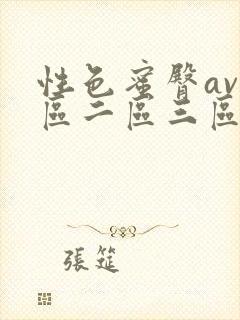 性色蜜臀av
區二區三區
張筵